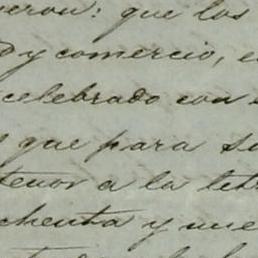 que los
y comercio,
celebrado con
que para su
tenor a la letra
chenta y nueve